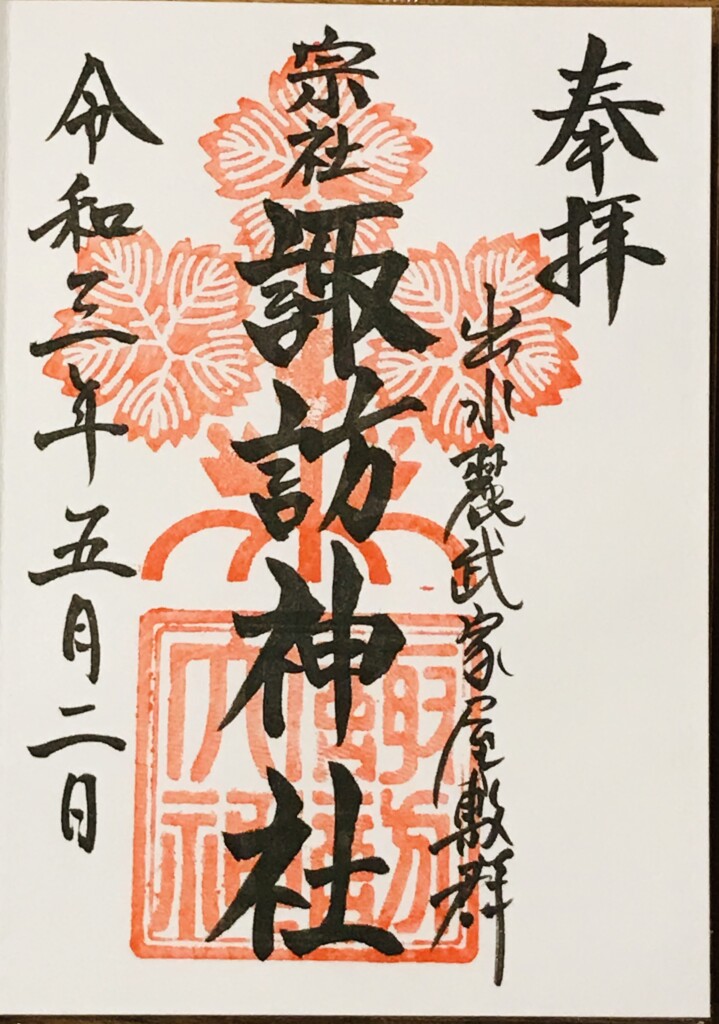 奉拝
出水麓武家屋敷群
宗社
諏訪神社
令和三年五月二日
諏訪大社